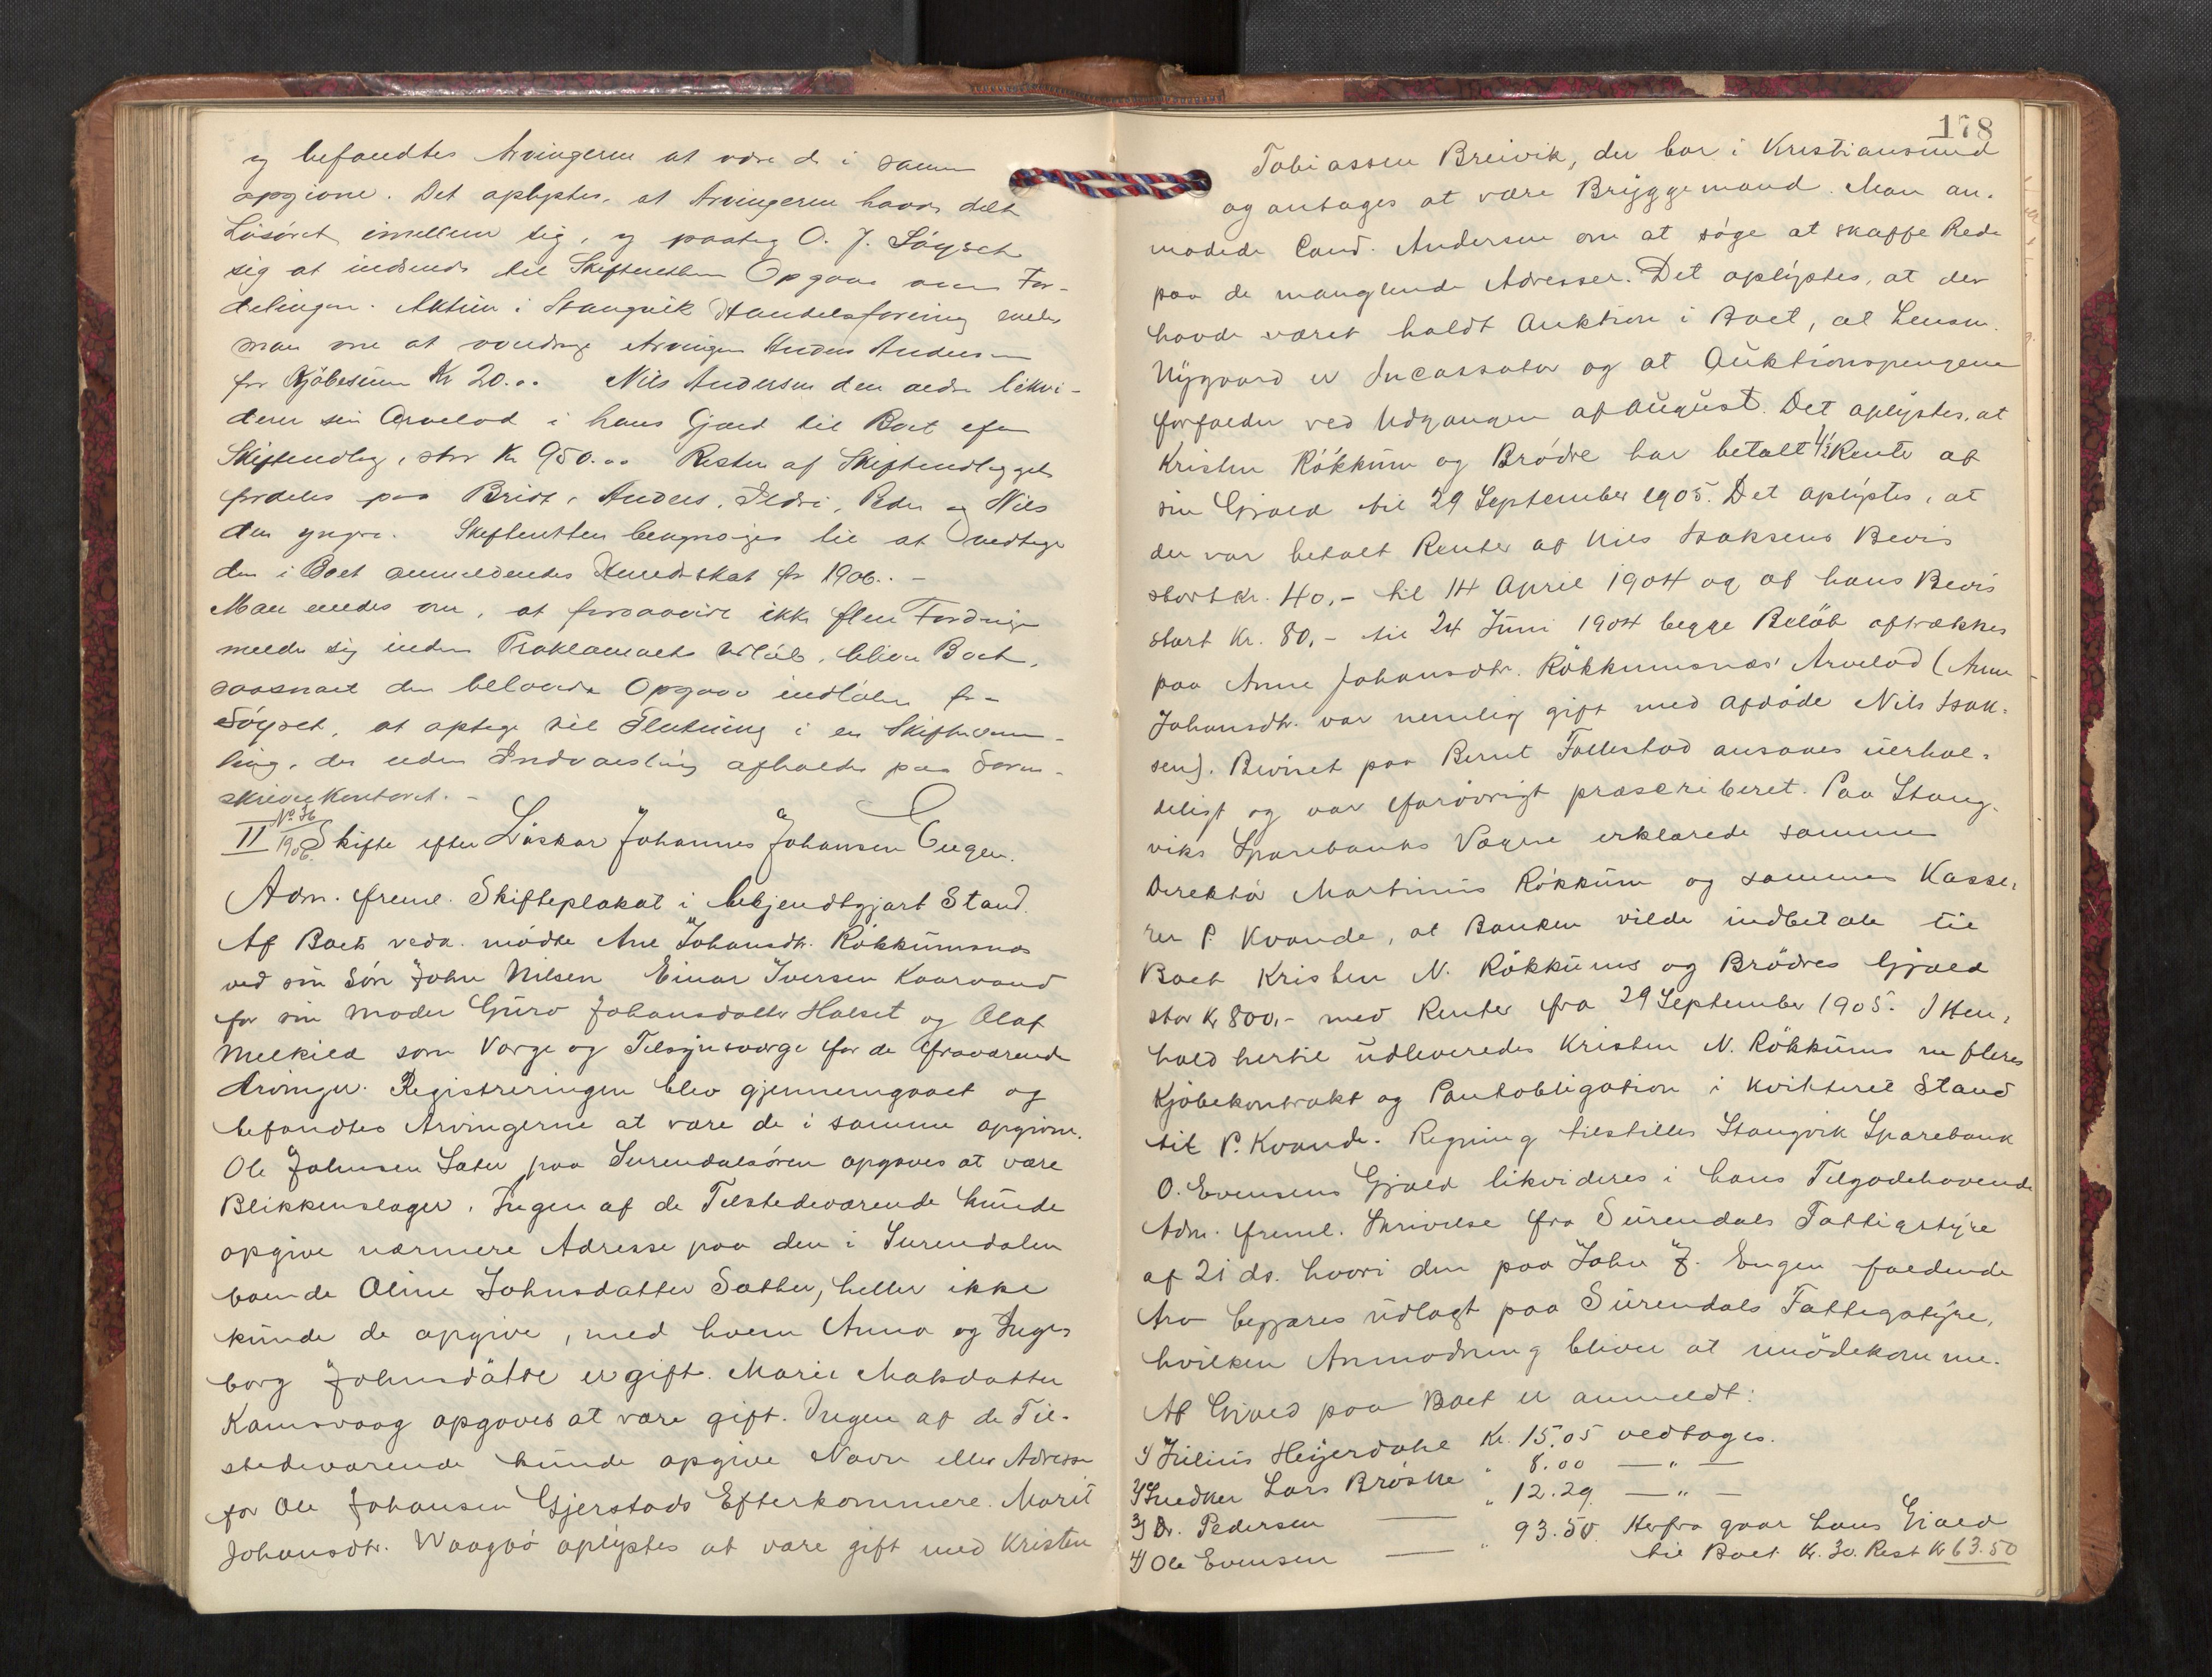 og befandtes Arvingerne at være de i samme
opgivne. Det oplystes, at Arvingerne havde delt
Lösöret imellem sig, og paatog O. J. Söyset
sig at indsende til Skifteretten Opgave over For-
delingen. Aktien i Stangvik Handelsforening enedes
man om at overdrage Arvingen Anders Andersen
for Kjöbesum Kr 20.00 Nils Andersen den ældre likvi-
derer sin Arvelod i hans Gjæld til Boet efter
Skifteudlæg, stor Kr 950.00 Resten af Skifteudlægget
fordeles paa Brit, Anders, Ildri, Peder og Nils
den yngre. Skifteretten bemyndiges til at vedtage
den i Boet anmeldendes Herredsskat for 1906. -
Man enedes om, at forsaavidt ikke flere Fordringer
melder sig inden Proklamaets Udløb, bliver Boet,
saasnart den belovede Opgave indløber fra
Söyset, at optage til Slutning i en Skiftesam-
ling, der uden Indvarsling afholdes paa Soren-
skriverkontoret. -
No 36
II 1906. Skifte efter Løskar Johannes Johansen Engen.
Adm. freml. Skifteplakat i bekjendtgjort Stand.
Af Boets vedk. mödte Ane Johansdtr. Rökkumsnæs
ved sin Sön John Nilsen Einar Iversen Kaarvand
for sin Moder Guro Johansdatter Halset og Olaf
Melkild som Værge og Tilsynsværge for de fraværende
Arvinger. Registreringen blev gjennemgaaet og
befandtes Arvingerne at være de i samme opgivne.
Ole Johnsen Sæter paa Surendalsören opgaves at være
Blikkenslager. Ingen af de Tilstedeværende kunde
opgive nærmere Adresse paa den i Surendalen
boende Oline Johnsdatter Sæther, heller ikke
kunde de opgive, med hvem Anna og Inge-
borg Johnsdötre er gift. Marie Maksdatter
Kamsvaag opgaves at være gift. Ingen af de Til-
stedeværende kunde opgive Navn eller Adresse
for Ole Johansen Gjerstads Efterkommere. Marit
Johansdtr. Waagbö oplystes at være gift med Kristen
178
Tobiassen Breivik, der bor i Kristiansund
og antages at være Bryggemand. Man an-
modede Cand. Andersen om at söge at skaffe Rede
paa de manglende Adresser. Det oplystes, at der
havde været holdt Auktion i Boet, at Lensm.
Nygaard er Incassator og at Auktionspengene
forfalder ved Udgangen af August. Det oplystes, at
Kristen Rökkum og Brödre har betalt 4½ Rente af
sin Gjæld til 29 September 1905. Det oplystes, at
der var betalt Renter af Nils Isaksens Bevis
stort Kr. 40,- til 14 April 1904 og af hans Bevis
stort Kr. 80,- til 24 Juni 1904 begge Belöb aftrækkes
paa Anne Johansdtr. Rökkumsnæs' Arvelod (Anne
Johansdtr. var nemlig gift med afdöde Nils Isak-
sen). Beviset paa Bernt Follestad ansaaes uerhol-
deligt og var forövrigt præscriberet. Paa Stang-
viks Sparebanks Vegne erklærede sammes
Direktör Martinus Rökkum og sammes Kasse-
rer P. Kvande, at Banken vilde indbetale til
Boet Kristen N. Rökkums og Brödres Gjæld
stor Kr 800,- med Renter fra 29 September 1905. I Hen-
hold hertil udleveredes Kristen N. Rökkums m fleres
Kjöbekontrakt og Pantobligation i kvitteret Stand
til P. Kvande. Regning tilstilles Stangvik Sparebank
O. Evensens Gjæld likvideres i hans Tilgodehavende
Adm. freml. Skrivelse fra Surendals Fattigstyre
af 21 ds. hvori den paa John J. Engen faldende
Arv begjæres udlagt paa Surendals Fattigstyre,
hvilken Anmodning bliver at imödekomme.
Af Gjæld paa Boet er anmeldt:
1) Julius Heyerdahl Kr. 15.05 vedtages.
2) Snedker Lars Bröske " 8.00 — " —
3) Dr. Pedersen — " 12.29 — " —
4) Ole Evensen — " 93.50 Herfra gaar hans Gjæld
til Boet Kr. 30. Rest Kr 63.50